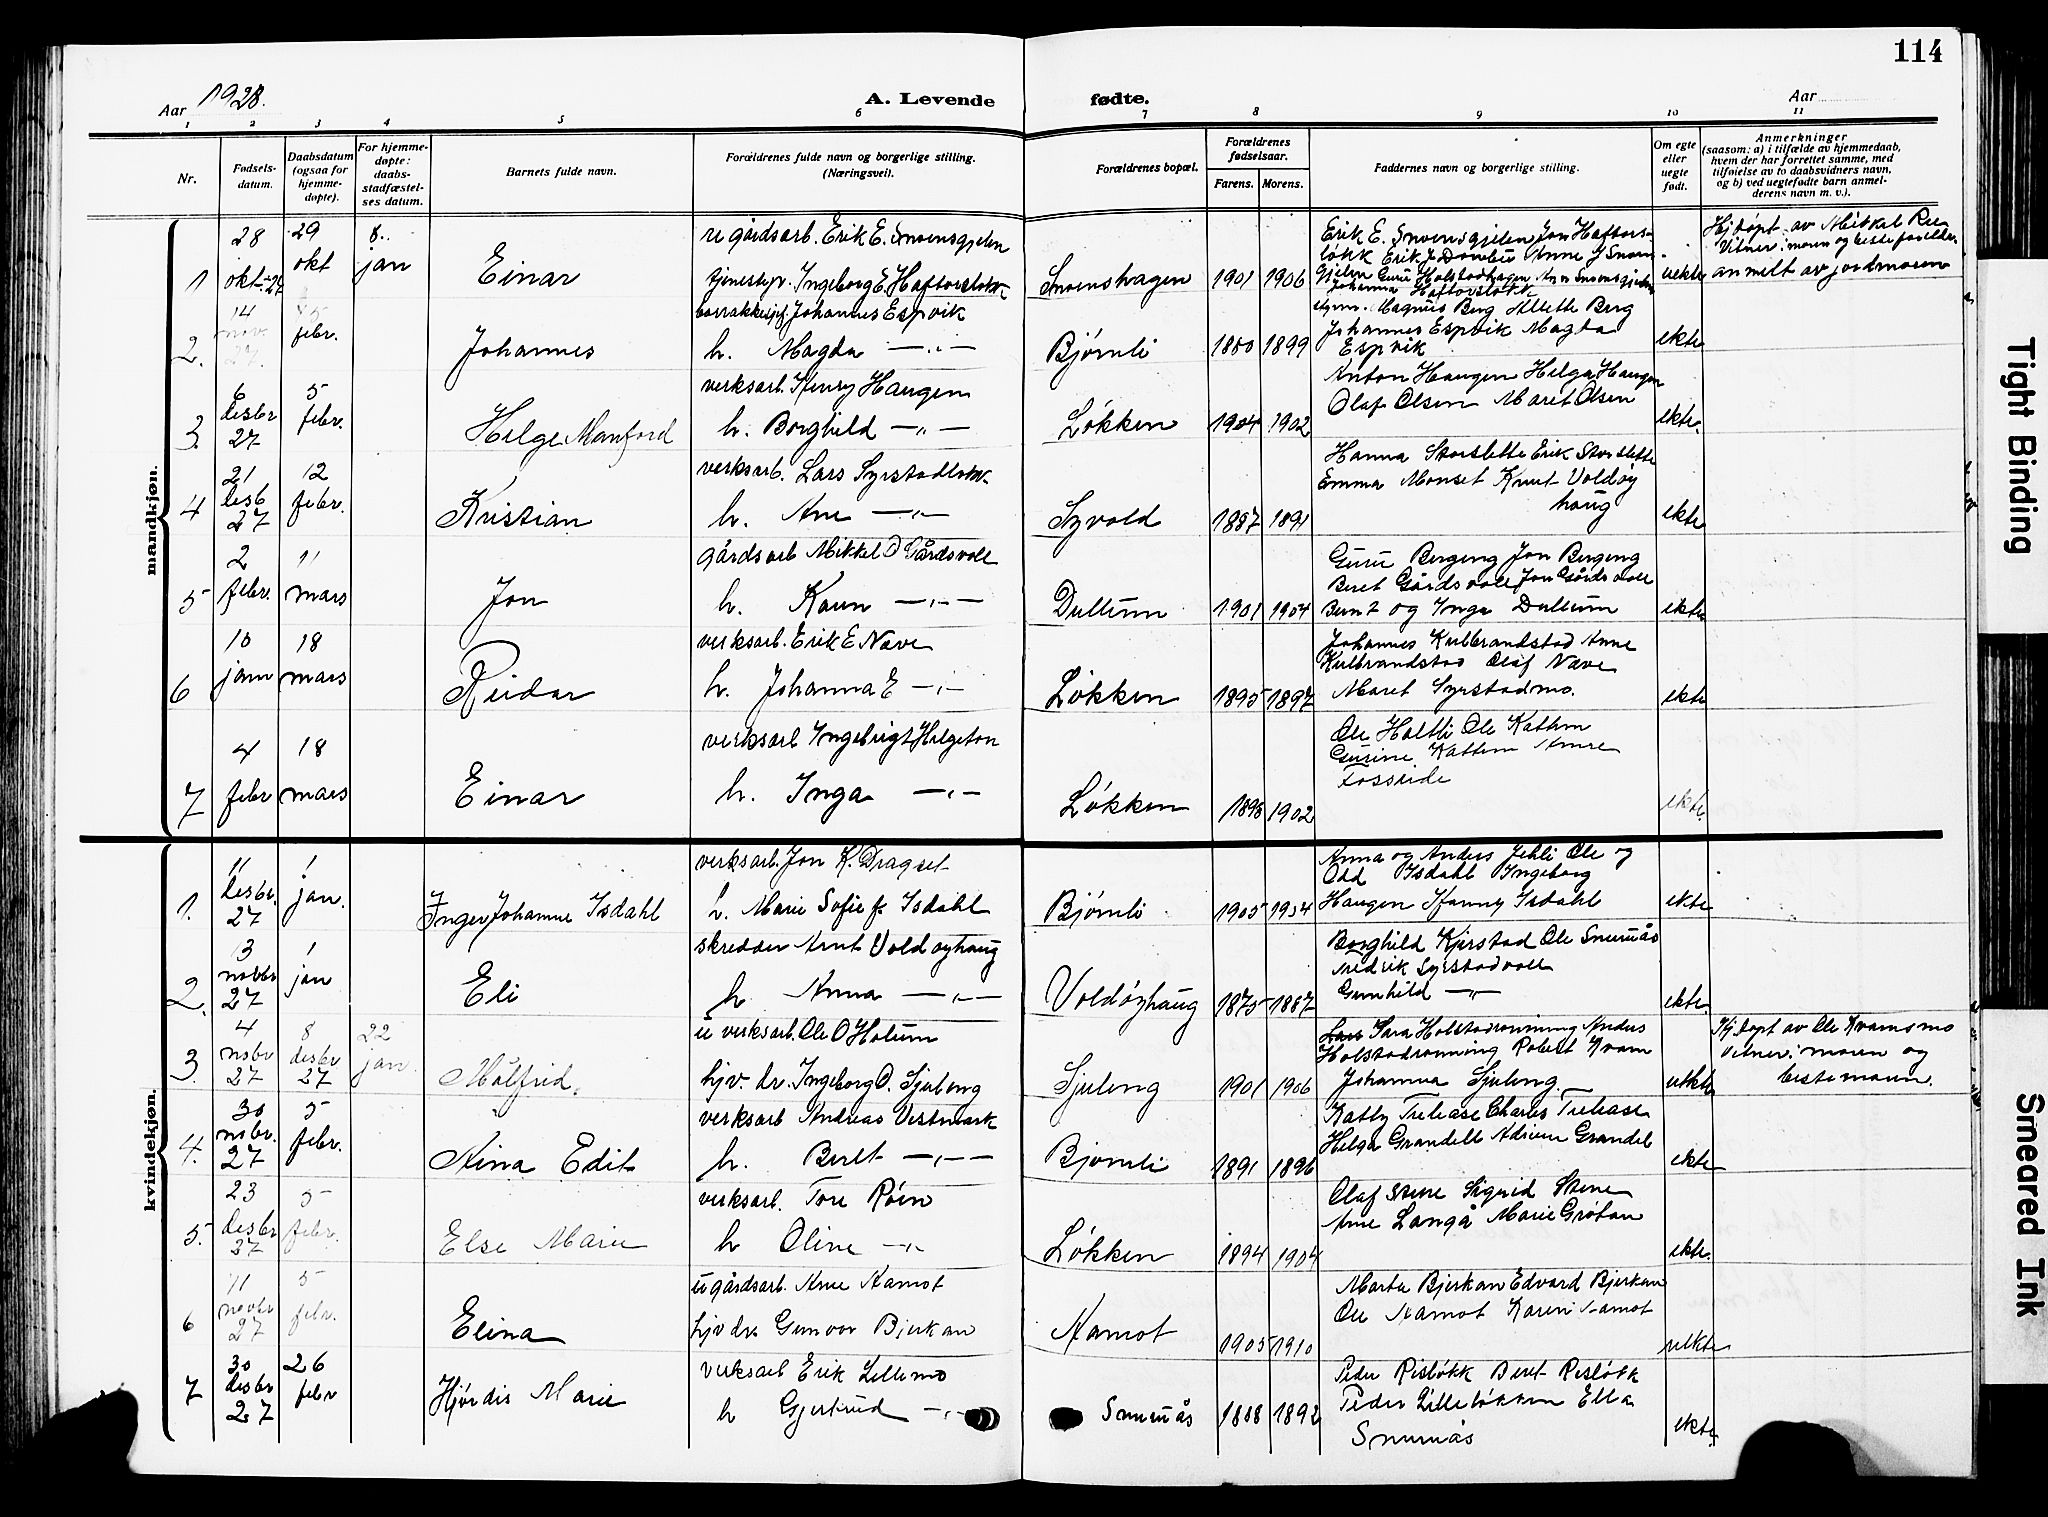 114
Aar 1928.
A. Levende fødte.
Aar
1 2 3 4 5 6 7 8 9 10 11
Nr.
Fødsels-
datum.
Daabsdatum
(ogsaa for
hjemme-
døpte).
For hjemme-
døpte:
daabs-
stadfæstel-
ses datum.
Barnets fulde navn.
Forældrenes fulde navn og borgerlige stilling.
(Næringsvei).
Forældrenes bopæl.
Forældrenes
fødselsaar.
Farens. Morens.
Faddernes navn og borgerlige stilling.
Om egte
eller
uegte
født.
Anmerkninger
(saasom: a) i tilfælde av hjemmedaab,
hvem der har forrettet samme, med
tilføielse av to daabsvidners navn,
og b) ved uegtefødte barn anmel-
derens navn m. v.).
mandkjøn.
1
28
okt. 27
29
okt
8.
jan
Einar
gårdsarb. Erik E. Snoensgjelen
tjenestep. Ingeborg E. Haftorsløkk
Snoenshagen
1901 1906
Erik E. Snoensgjelen Jon Haftors-
løkk Erik J Dombu Anne J Snoens
Gjelen Guru Holstadhagen
Johanna Haftorsløkk
uekte
Hj.døpt av Mikkel
Vitner: moren og besteforeldre
anmelt av jordmoren
2.
14
nov.
27.
febr.
Johannes
Johannes Espvik
h. Magda —„—
Bjørnli
1880 1899
Magnus Berg Allette Berg
Johannes Espvik Magda
Espvik
ekte
3.
6
desbr
27
5
febr.
Helge Manford
verksarb. Henry Haugen
h. Borghild —„—
Løkken
1904 1902
Anton Haugen Helga Haugen
Olaf Olsen Maret Olsen
ekte.
4
21
desb
27
12
febr.
Kristian
verksarb. Lars Syrstadløkk
h. Ane —„—
Syvold
1887 1891
Hanna Storslette Erik Storslette
Emma Monset Knut Voldøy
haug
ekte
5
2
febr.
11
mars
Jon
gårdsarb Mikkel O Gårdsvoll
h. Karen —„—
Dullum
1901 1904
Guru Bergeng Jon Bergeng
Beret Gårdsvoll Jon Gårdsvoll
Bernt og Inga Dullum
ekte
6
10
jan
18
mars
Reidar
verksarb. Erik E Næve
h. Johanna E —„—
Løkken
1895 1897
Johannes Kulbrandstad Anne
Kulbrandstad Olaf Næve
Maret Syrstadmo.
ekte
7
4
febr
18
mars
Einar
verksarb Ingebrigt Helgeton
h. Inga —„—
Løkken
1898 1902
Ole Holtli Ole Kattem
Gurine Kattem Anne
Fosseide
ekte.
kvindekjøn.
1.
11
desbr.
27
1
jan.
Inger Johanne Isdahl
verksarb. Jon K. Dragset
h. Marie Sofie f. Isdahl
Bjørnli
1905 1904
Anna og Anders Jehli Ole og
Odd Isdahl Ingeborg
Haugen Fanny Isdahl
ekte
2.
13
novbr
27
1
jan
Eli
skredder Arnt Voldøyhaug
h Anna —„—
Voldøyhaug
1875 1887
Borghild Kjerstad Ole Snuruås
Fredrik Syrstadvoll
Gunhild —„—
ekte.
3.
4
nvbr
27
8
desbr
27
22
jan.
Målfrid.
u verksarb. Ole O Holum
hjv. dr. Ingeborg O. Sjuleng
Sjuleng
1901 1906
Sara Holstadrønning Anders
Holstadrønning Robert Kvam
Johanna Sjuleng
uekte
Hj.døpt av Ole Kvamsmo
vitner: moren og
bestemoren.
4.
30
nvbr.
27
5
febr.
Nina Edit
verksarb Andreas Vestmark
h. Beret —„—
Bjørnli
1891 1896
Katty Trelease Charles Trelease
Helga Grandell Adrian Grandel
ekte
5.
23
desbr
27
5
febr.
Else Marie
verksarb. Tore Røen
h Oline —„—
Løkken
1894 1904
Olaf Stene Sigrid Stene
Ane Langå Marie Grøtan
ekte.
6
11
novbr
27
5
febr.
Elina
u gårdsarb. Arne Aamot
hjv dr. Gunvor Bjerkan
Aamot
1905 1910
Marta Bjerkan Edvard Bjerkan
Ole Aamot Karen Aamot
uekte
7
30
desbr
27
26
febr
Hjørdis Marie
verksarb Erik Lillemo
h Gjertrud —„—
Snuruås
1888 1892
Peder Risløkk Beret Risløkk
Peder Lilleløkken Ella
Snuruås
ekte
Tight Binding
Smeared Ink